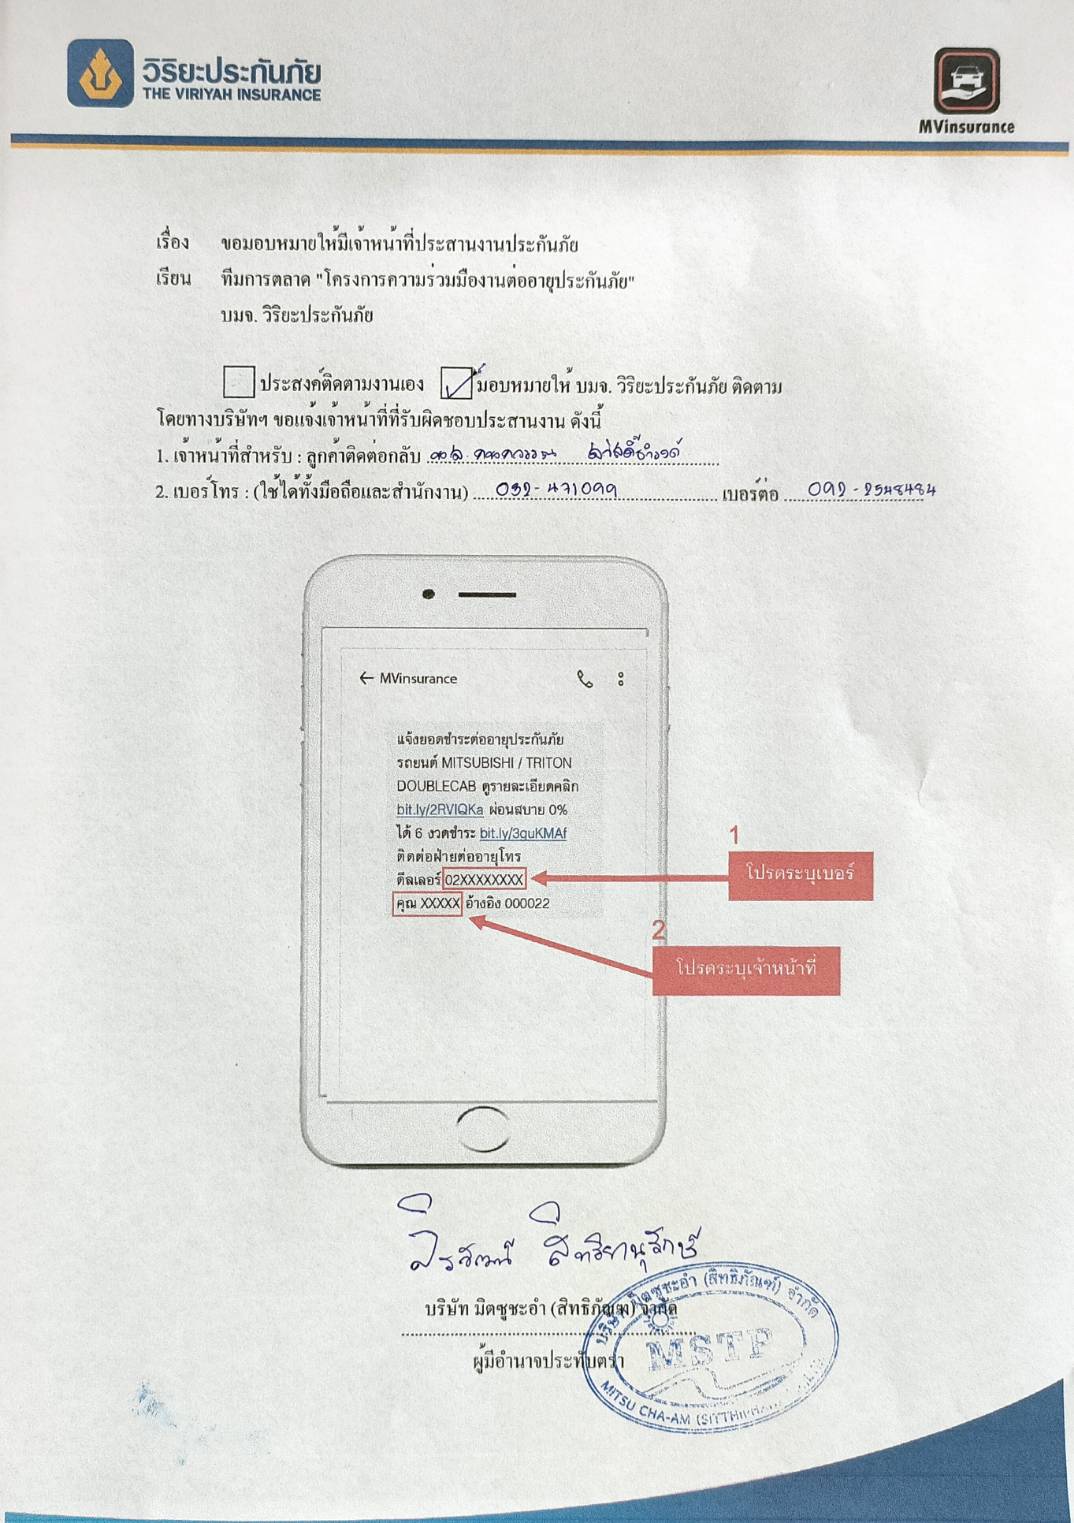 วิริยะประกันภัย
THE VIRIYAH INSURANCE
MVinsurance
เรื่อง ขอมอบหมายให้มีเจ้าหน้าที่ประสานงานประกันภัย
เรียน ทีมการตลาด "โครงการความร่วมมืองานต่ออายุประกันภัย"
บมจ. วิริยะประกันภัย
ประสงค์ติดตามงานเอง มอบหมายให้ บมจ. วิริยะประกันภัย ติดตาม
โดยทางบริษัทฯ ขอแจ้งเจ้าหน้าที่ที่รับผิดชอบประสานงาน ดังนี้
1. เจ้าหน้าที่สำหรับ : ลูกค้าติดต่อกลับ
2. เบอร์โทร : (ใช้ได้ทั้งมือถือและสำนักงาน) 032-471099 เบอร์ต่อ 092-2548484
← MVinsurance
แจ้งยอดชำระต่ออายุประกันภัย
รถยนต์ MITSUBISHI / TRITON
DOUBLECAB ดูรายละเอียดคลิก
bit.ly/2RVIQKa ผ่อนสบาย 0%
ได้ 6 งวดชำระ bit.ly/3guKMAf
ติดต่อฝ่ายต่ออายุโทร
ดีลเลอร์ 02XXXXXXXX
คุณ XXXXX อ้างอิง 000022
1
โปรดระบุเบอร์
2
โปรดระบุเจ้าหน้าที่
สิทธิยานุรักษ์
บริษัท มิตซูชะอำ (สิทธิภัณฑ์) จำกัด
ผู้มีอำนาจประทับตรา
บริษัท มิตซูชะอำ (สิทธิภัณฑ์) จำกัด
MSTP
MITSU CHA-AM